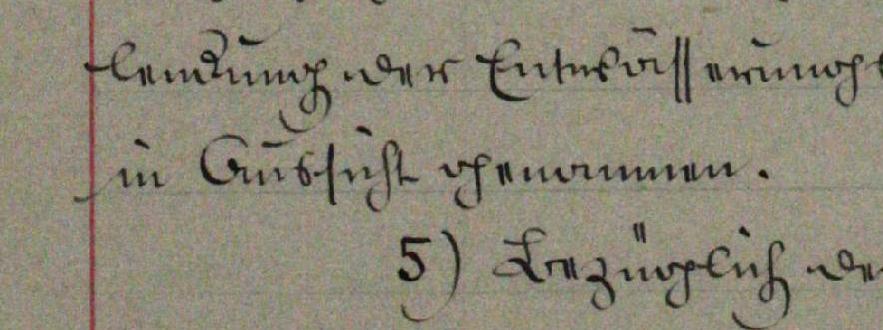 lenkung der Entwässerungs
in Aussicht genommen.
5) Bezüglich de